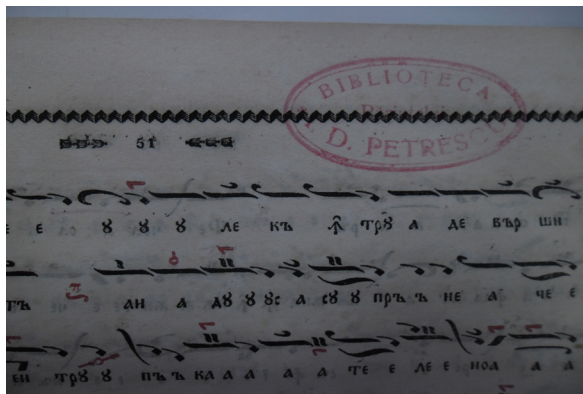 BIBLIOTECA
D. PETRESCU
51
Е Е Ȣ Ȣ Ȣ ЛЕ КЪ ꙟ ТРȢ А ДЕ ВЪР ШИ
ТЪ АН А ДȢ Ȣ Ȣс А сȢ Ȣ ПРЪ Ъ НЕ А ЧЕ Е
ЕН ТРȢ Ȣ ПЪ Ъ КА А А А А ТЕ Е ЛЕ Е НОА А А